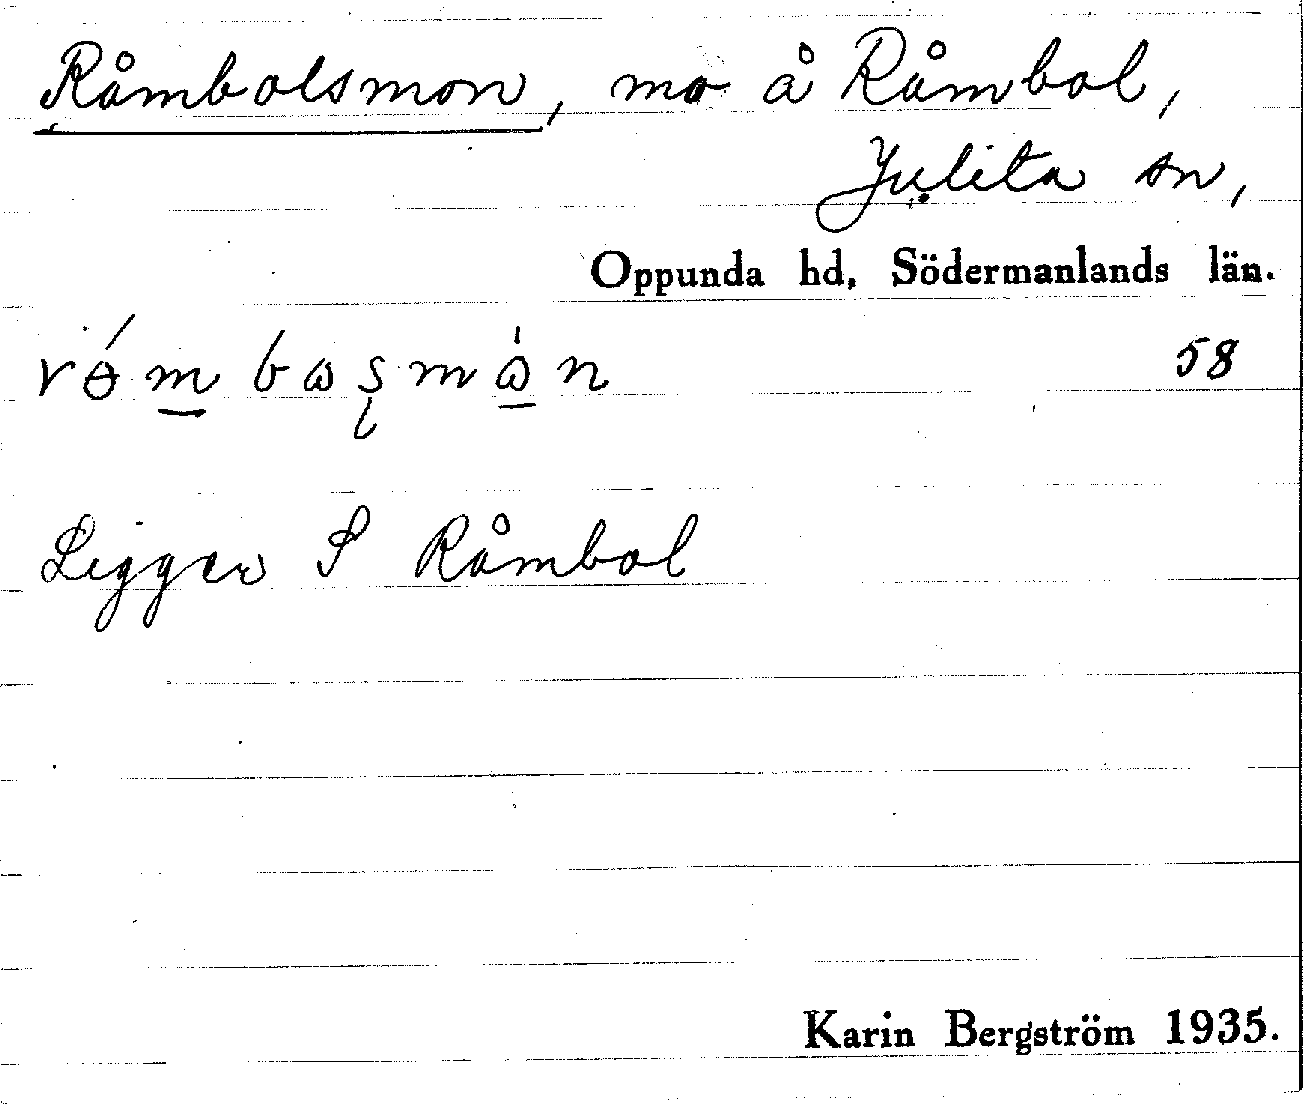 Råmbolsmon, mo å Råmbol,
Julita sn,
Oppunda hd, Södermanlands län.
58
Ligger S Råmbol
Karin Bergström 1935.